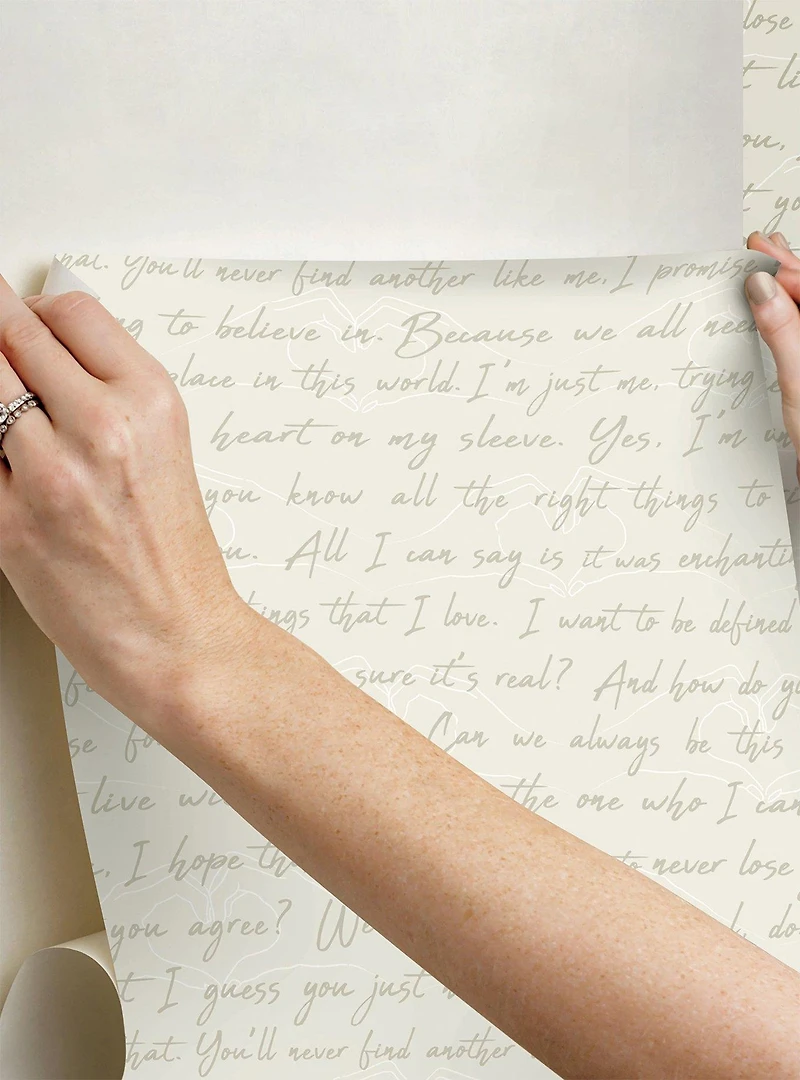 lose
t li
ou,
t yo
You'll never find another like me, I promise
ng to believe in. Because we all need
place in this world. I'm just me, trying
heart on my sleeve. Yes, I'm un
you know all the right things to
ou. All I can say is it was enchanti
ings that I love. I want to be defined
sure it's real? And how do yo
se fo Can we always be this
live wi the one who I can
, I hope th to never lose
you agree? We , do
t I guess you just
hat. You'll never find another